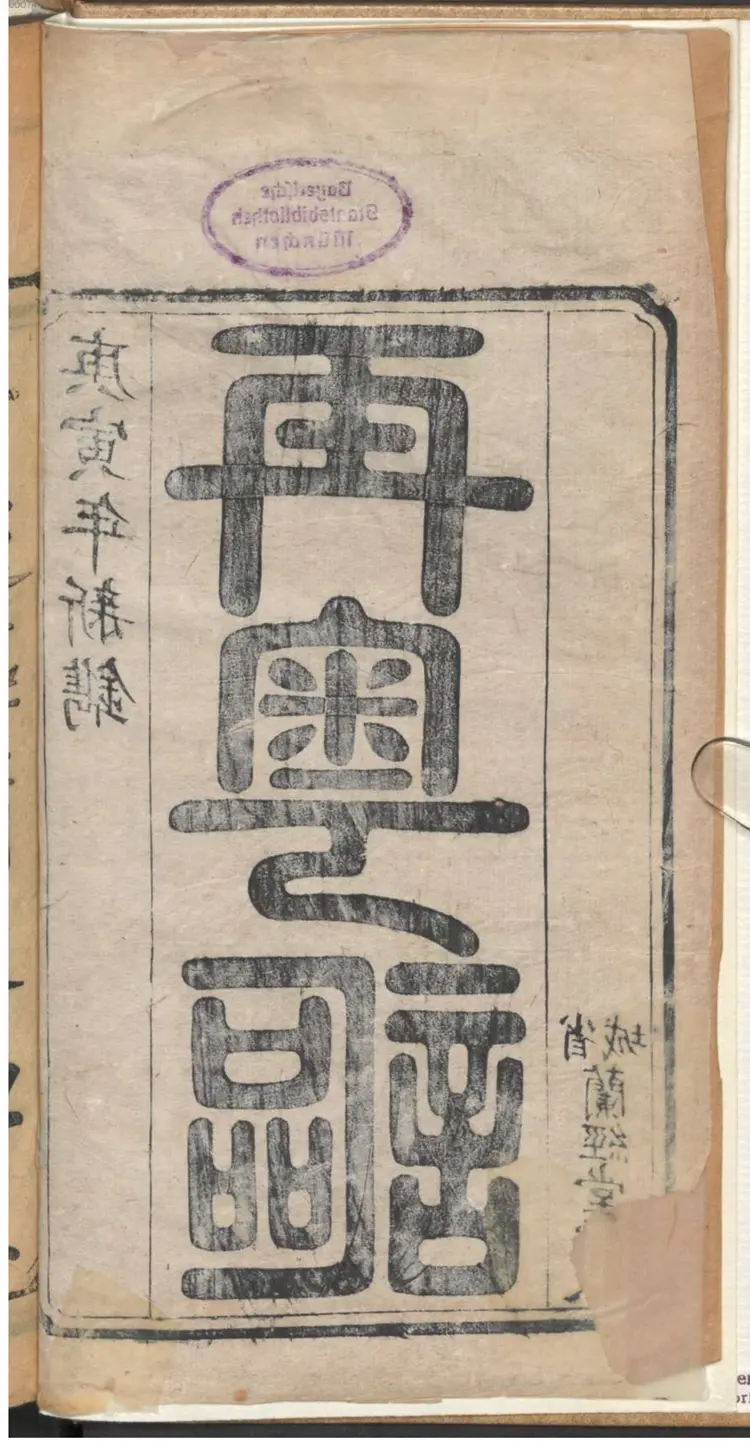 Bayerische
Staatsbibliothek
München
庚寅年新鐫
再粵謳
省城
蘭經堂